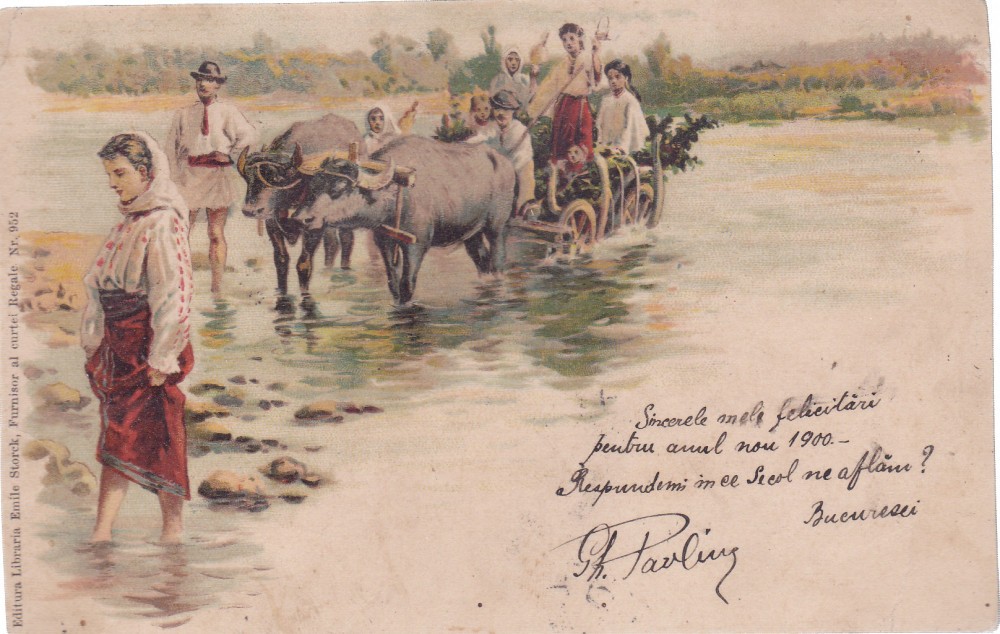 Editura Libraria Emile Storck, Furnisor al curtei Regale Nr. 952
Sincerele mele felicitări
pentru anul nou 1900.-
Respundemi in ce Secol ne aflăm?
Bucuresci
Gh. Pavlinz